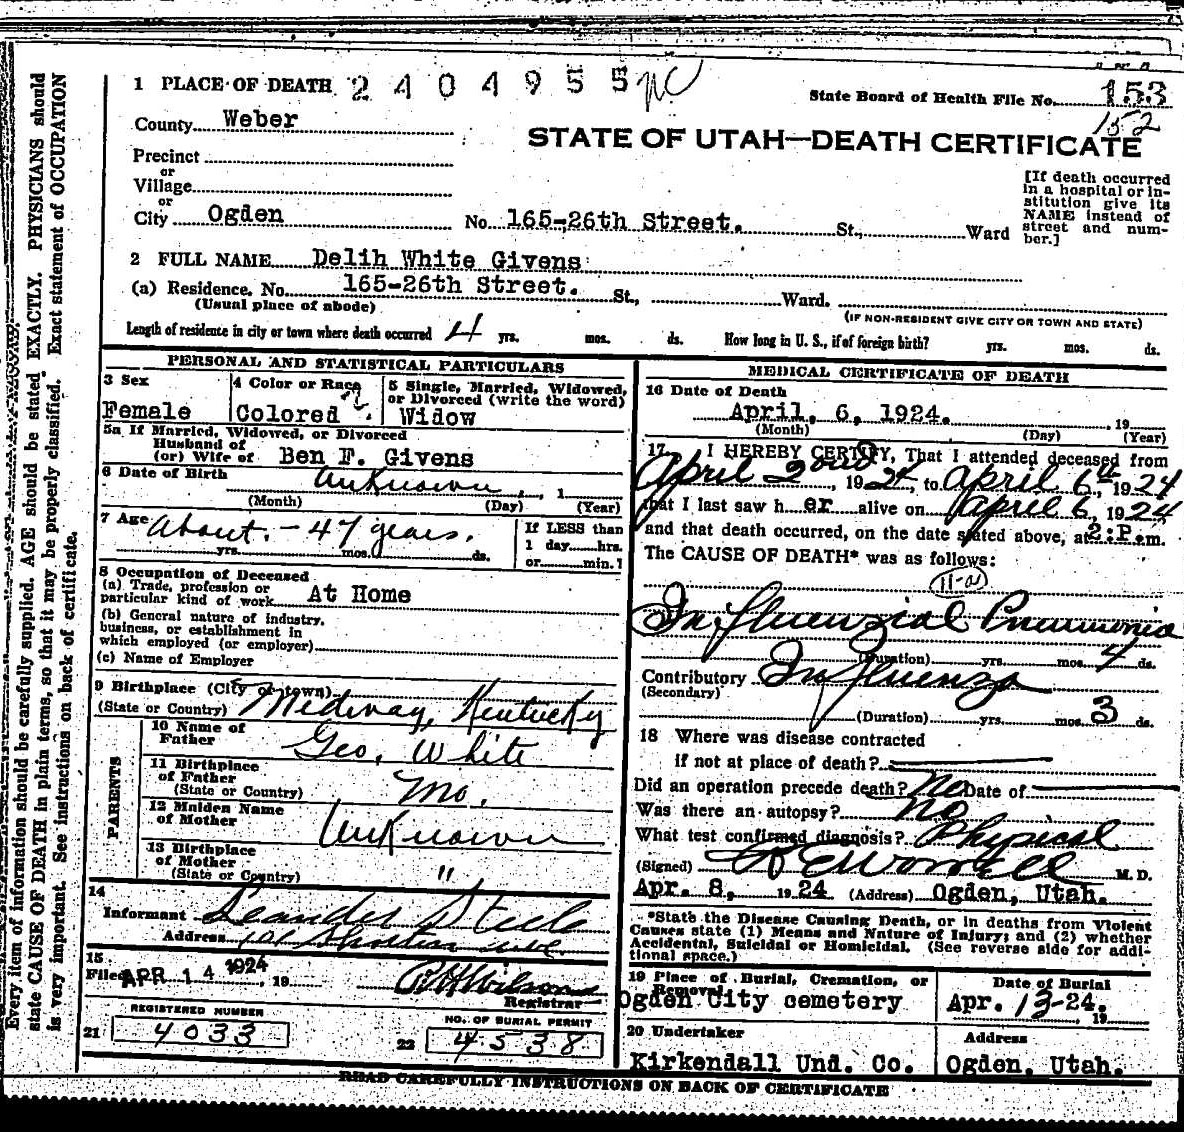 1 PLACE OF DEATH 2404955
State Board of Health File No. 153
152
County Weber
STATE OF UTAH—DEATH CERTIFICATE
Precinct
or
Village
or
City Ogden No. 165-26th Street. St., Ward
[If death occurred
in a hospital or in-
stitution give its
NAME instead of
street and num-
ber.]
2 FULL NAME Delih White Givens
(a) Residence. No. 165-26th Street. St., Ward.
(Usual place of abode)
(IF NON-RESIDENT GIVE CITY OR TOWN AND STATE)
Length of residence in city or town where death occurred 4 yrs. mos. ds. How long in U. S., if of foreign birth? yrs. mos. ds.
PERSONAL AND STATISTICAL PARTICULARS
3 Sex
Female
4 Color or Race
Colored
5 Single, Married, Widowed,
or Divorced (write the word)
Widow
5a If Married, Widowed, or Divorced
Husband of
(or) Wife of Ben F. Givens
6 Date of Birth Unknown, 1
(Month) (Day) (Year)
7 Age About - 47 years.
yrs. mos. ds.
If LESS than
1 day hrs.
or min.
8 Occupation of Deceased
(a) Trade, profession or
particular kind of work At Home
(b) General nature of industry,
business, or establishment in
which employed (or employer)
(c) Name of Employer
9 Birthplace (City or town)
(State or Country) Mediway, Kentucky
PARENTS
10 Name of
Father Geo. White
11 Birthplace
of Father
(State or Country) Mo.
12 Maiden Name
of Mother Unknown
13 Birthplace
of Mother
(State or Country) "
14
Informant Leander Steele
Address
15
Filed APR 14 1924, 19
R H Wilson
Registrar
REGISTERED NUMBER
21 4033
NO. OF BURIAL PERMIT
22 4538
MEDICAL CERTIFICATE OF DEATH
16 Date of Death
April, 6, 1924. , 19
(Month) (Day) (Year)
17. I HEREBY CERTIFY, That I attended deceased from
April 2nd, 1924, to April 6th, 1924
that I last saw her alive on April 6, 1924
and that death occurred, on the date stated above, at 2:P.m.
The CAUSE OF DEATH* was as follows:
11-a
Influenzial Pneumonia
(Duration) yrs. mos. 4 ds.
Contributory Influenza
(Secondary)
(Duration) yrs. mos. 3 ds.
18 Where was disease contracted
if not at place of death?
Did an operation precede death? No Date of
Was there an autopsy? No
What test confirmed diagnosis? Physical
(Signed) M. D.
Apr. 8, 1924 (Address) Ogden, Utah.
*State the Disease Causing Death, or in deaths from Violent
Causes state (1) Means and Nature of Injury; and (2) whether
Accidental, Suicidal or Homicidal. (See reverse side for addi-
tional space.)
19 Place of Burial, Cremation, or
Removal
Ogden City cemetery
Date of Burial
Apr. 13-24. , 19
20 Undertaker
Kirkendall Und. Co.
Address
Ogden, Utah.
READ CAREFULLY INSTRUCTIONS ON BACK OF CERTIFICATE
Every item of information should be carefully supplied. AGE should be stated EXACTLY. PHYSICIANS should
state CAUSE OF DEATH in plain terms, so that it may be properly classified. Exact statement of OCCUPATION
is very important. See instructions on back of certificate.